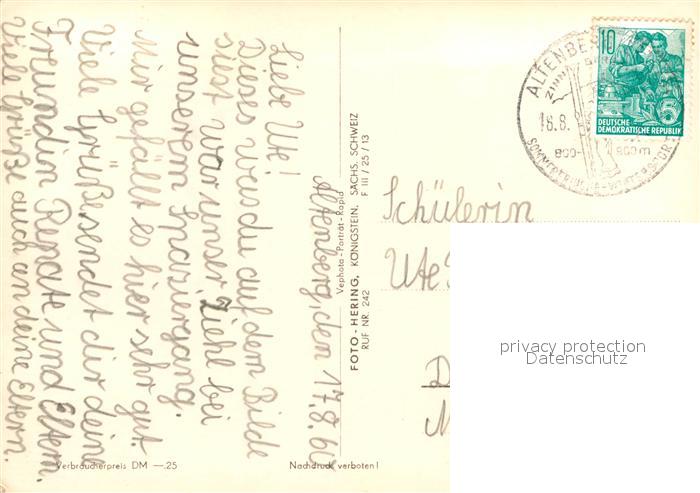 Altenberg, den 17.8.60
Liebe Ute!
Dieses was du auf dem Bilde
sist war unser Ziehl bei
unserem Spaziergang.
Mir gefällt es hier sehr gut.
Viele Grüße sendet dir deine
Freundin Renate und Eltern.
Viele Grüße auch an deine Eltern.
Vephota-Porträt-Rapid
FOTO-HERING, KÖNIGSTEIN, SÄCHS. SCHWEIZ
RUF NR. 242 F III / 25 / 13
Verbraucherpreis DM —.25
Nachdruck verboten!
18.8.
800-
860m
10
5
DEUTSCHE
DEMOKRATISCHE REPUBLIK
Schülerin
Ute
D
M
privacy protection
Datenschutz